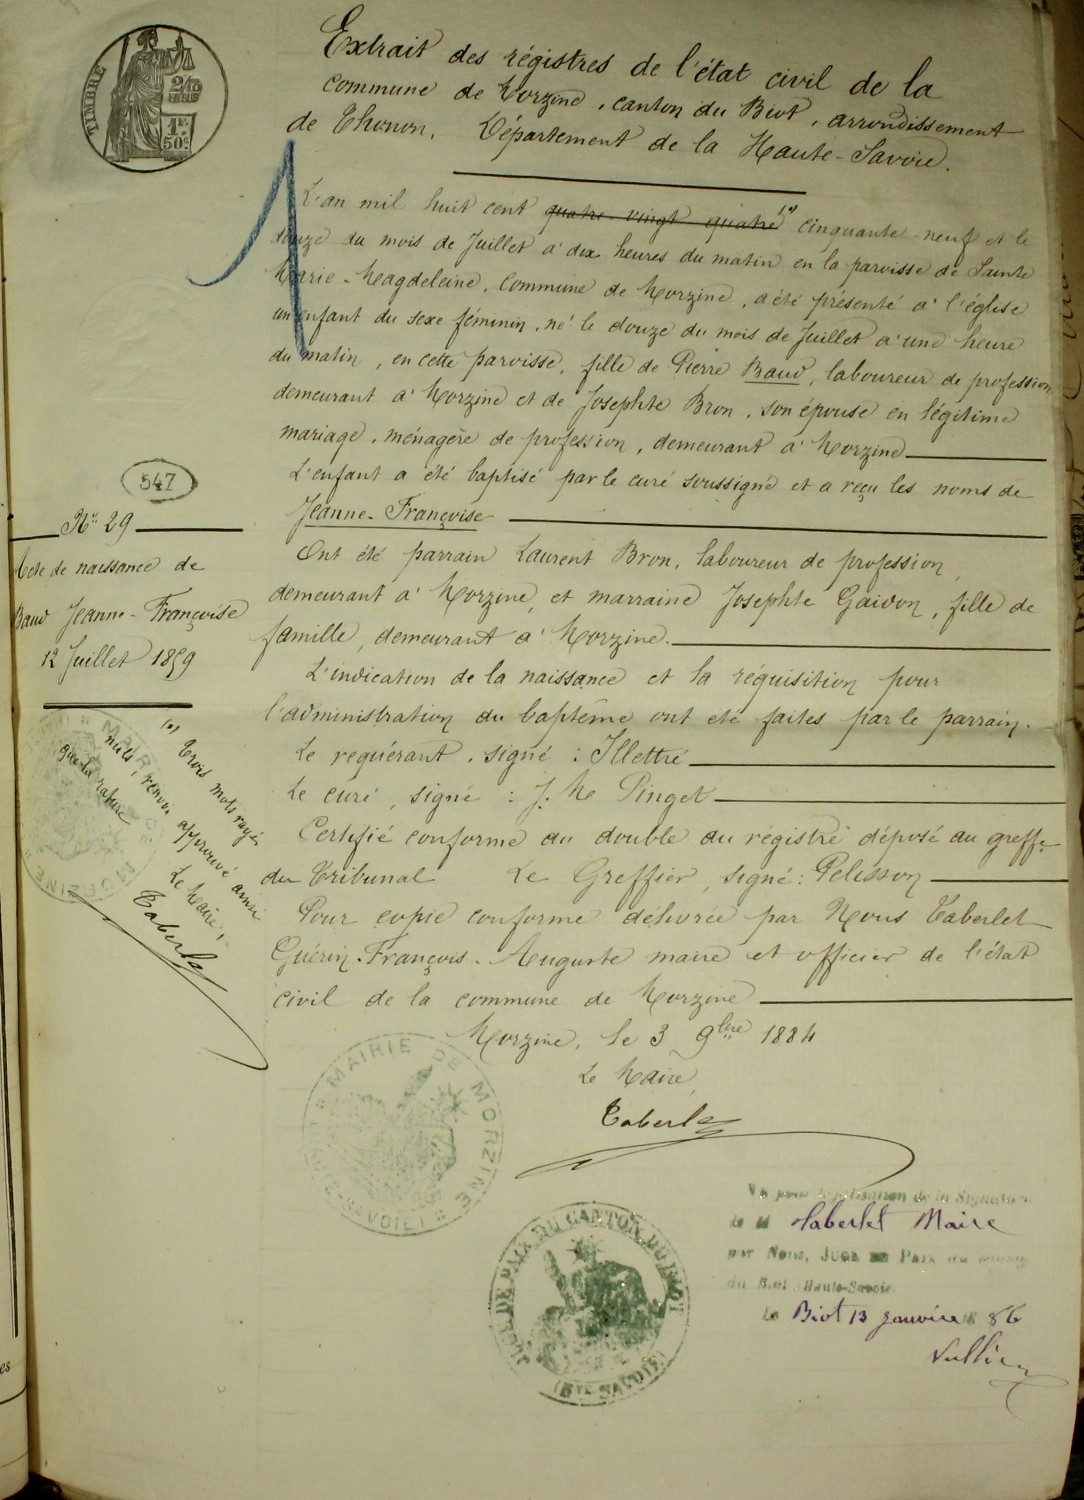 TIMBRE
2/10 EN SUS
1F. 50C.
Extrait des régistres de l'état civil de la
commune de Morzine, canton du Biot, arrondissement
de Thonon, Département de la Haute-Savoie.
L'an mil huit cent quatre vingt quatre (a) cinquante-neuf et le
douze du mois de Juillet à dix heures du matin en la paroisse de Sainte
Marie-Magdeleine, commune de Morzine, a été présenté à l'église
un enfant du sexe féminin, né le douze du mois de Juillet à une heure
du matin, en cette paroisse, fille de Pierre Baud, laboureur de profession
demeurant à Morzine et de Josephte Bron, son épouse en légitime
mariage, ménagère de profession, demeurant à Morzine
L'enfant a été baptisé par le curé soussigné et a reçu les noms de
Jeanne-Françoise
Ont été parrain Laurent Bron, laboureur de profession,
demeurant à Morzine, et marraine Josephte Gaidon, fille de
famille, demeurant à Morzine.
L'indication de la naissance et la réquisition pour
l'administration du baptême ont été faites par le parrain.
Le requérant, signé : Illettré
Le curé, signé : J. M Pinget
Certifié conforme au double du régistre déposé au greffe
du Tribunal Le Greffier, signé : Pelisson
Pour copie conforme délivrée par Nous Taberlet
Guérin-François-Auguste maire et officier de l'état
civil de la commune de Morzine
Morzine, le 3 9bre 1884
Le Maire,
Taberlet
547
No 29
Acte de naissance de
Baud Jeanne-Françoise
12 Juillet 1859
(a) Trois mots rayés
nuls, renvoi approuvé ainsi
que la rature
Le Maire,
Taberlet
MAIRIE DE MORZINE
MAIRIE DE MORZINE (HAUTE-SAVOIE)
JUGE DE PAIX DU CANTON DU BIOT
(HTE SAVOIE)
Vu pour légalisation de la Signature
de M Taberlet Maire
par Nous, JUGE DE PAIX du canton
du Biot (Haute-Savoie)
Le Biot 13 janvier 1886
Vullien